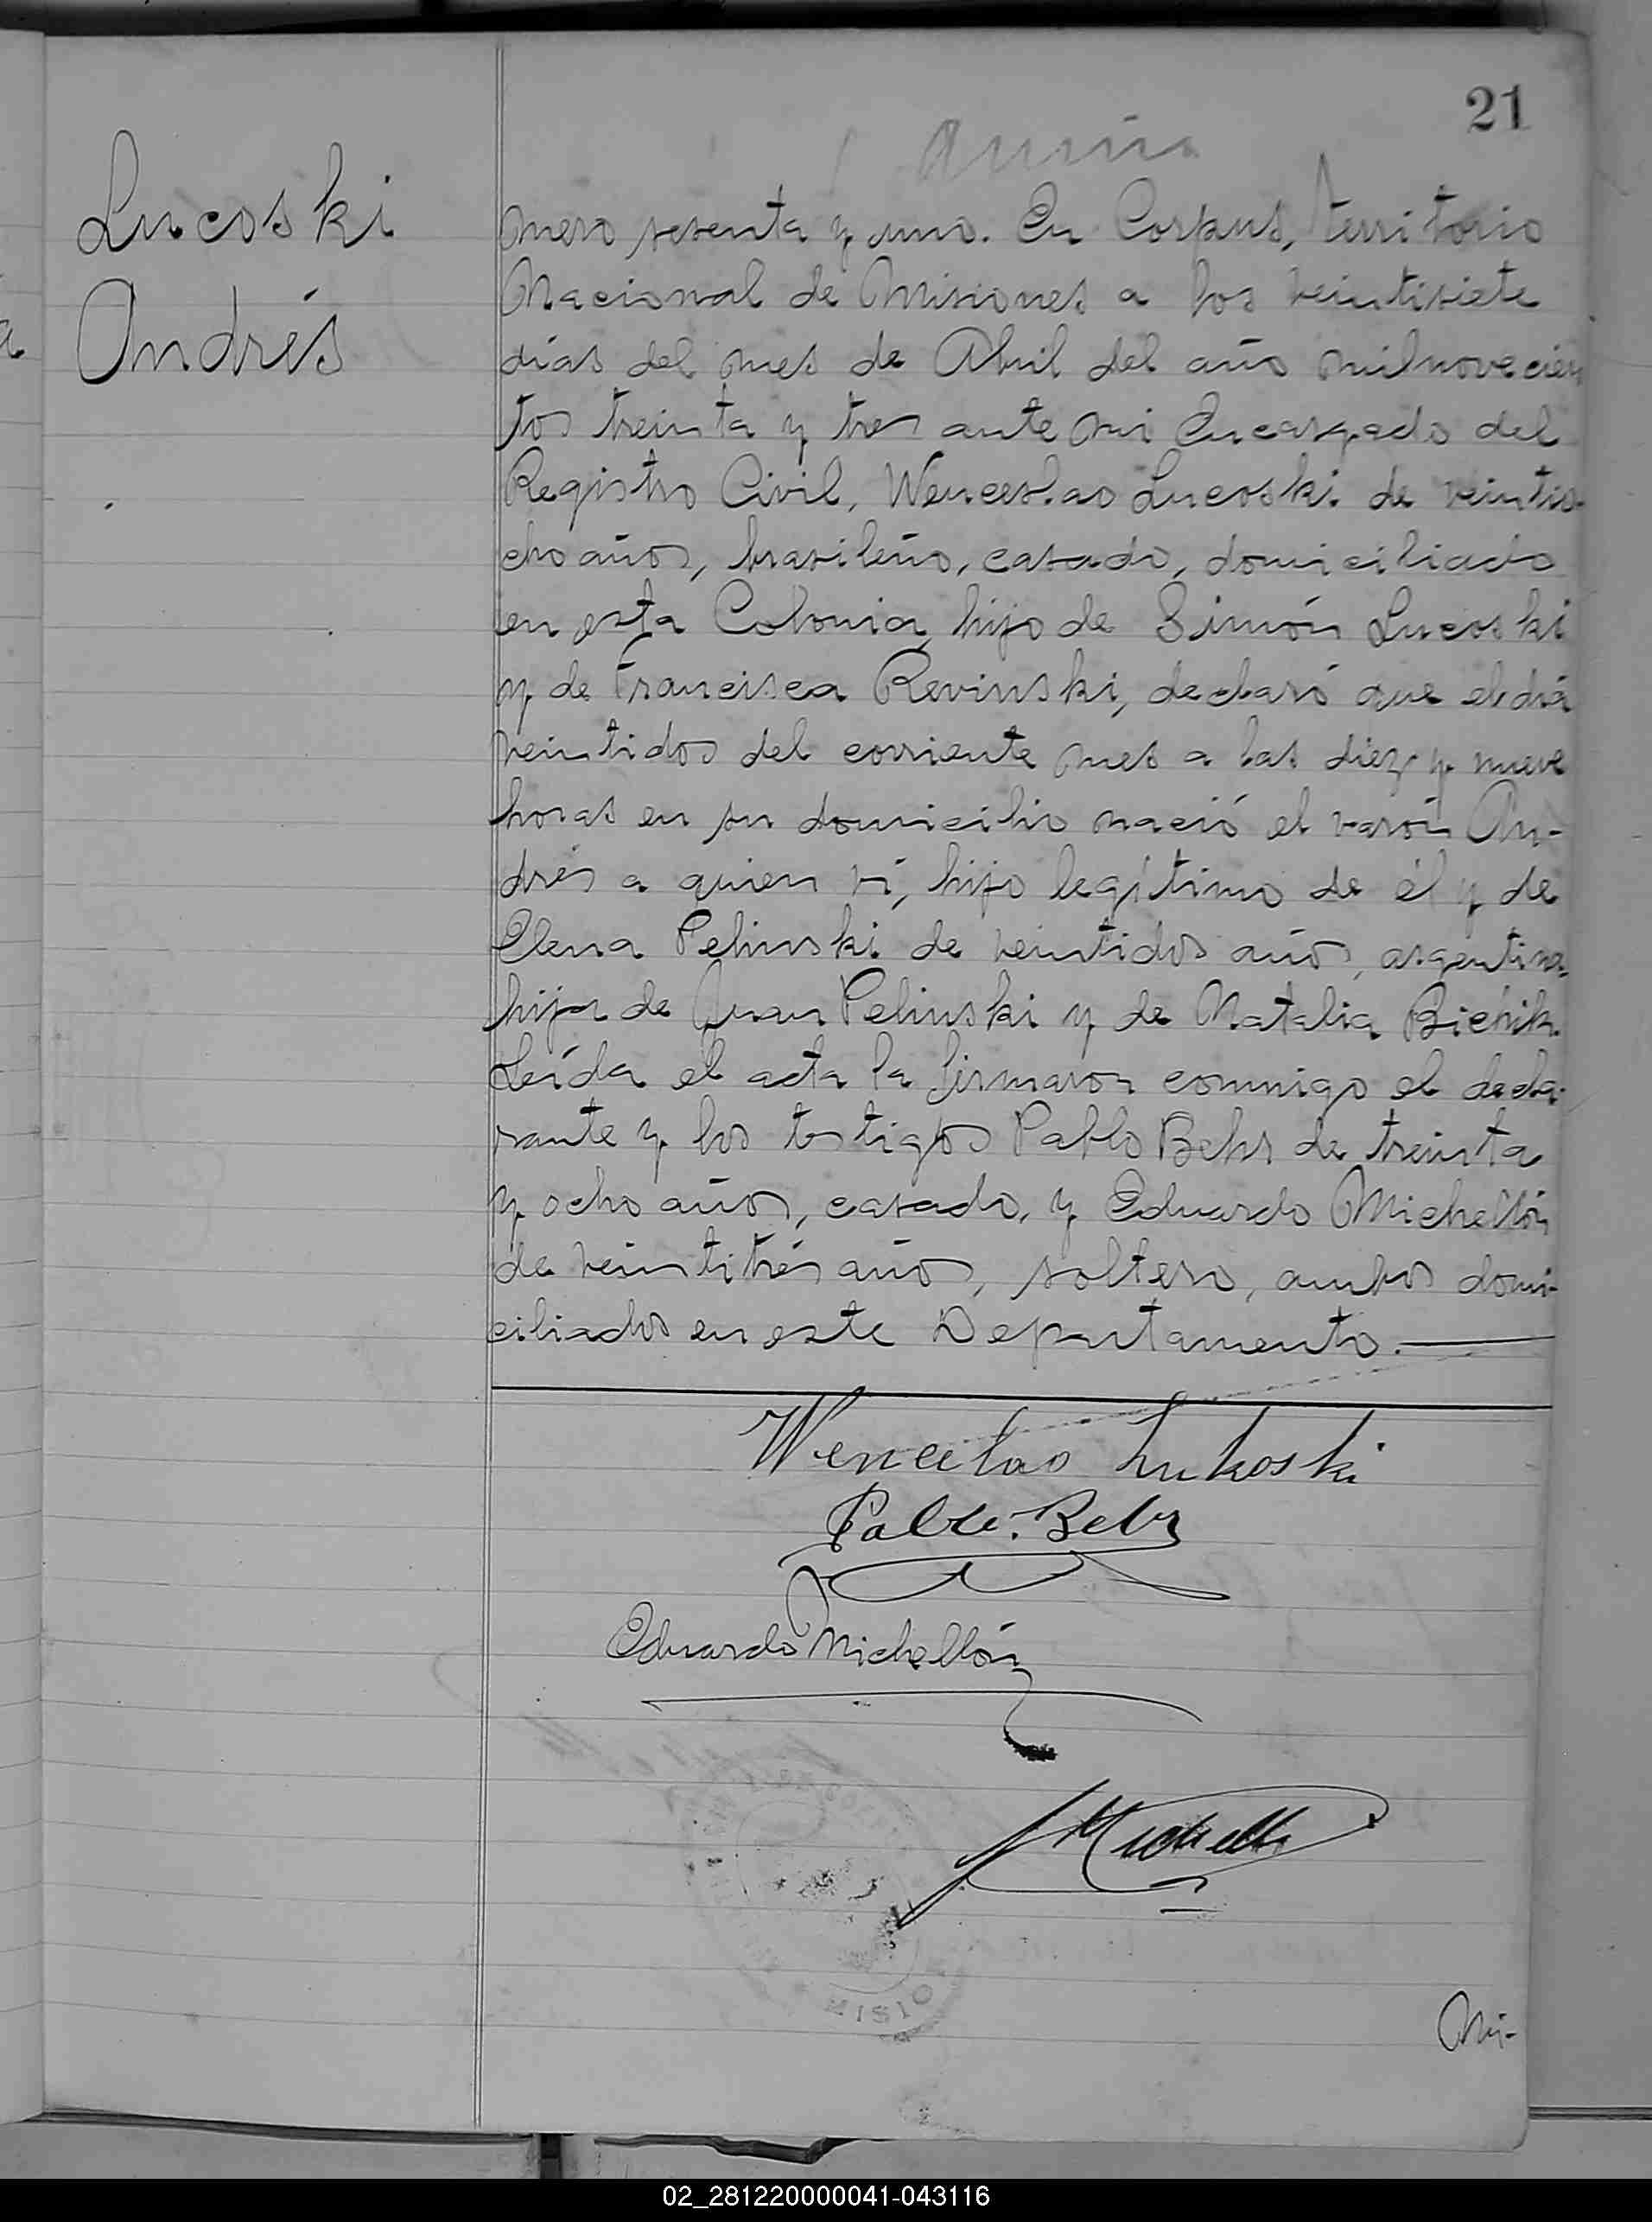 21
Lucoski
Andrés
mero sesenta y uno. En Corpus, territorio
Nacional de Misiones a los veintisiete
días del mes de Abril del año milnovecien
tos treinta y tres ante mi Encargado del
Registro Civil, Wenceslao Lucoski de veintio-
cho años, brasileño, casado, domiciliado
en esta Colonia, hijo de Simón Lucoski
y de Francisca Revinski, declaró que el día
veintidos del corriente mes a las diez y nueve
horas en su domicilio nació el varón An-
drés a quien ví, hijo legítimo de él y de
Elena Pelinski de veintidos años, argentina,
hija de Juan Pelinski y de Natalia
Leída el acta la firmaron conmigo el decla-
rante y los testigos Pablo Behr de treinta
y ocho años, casado, y Eduardo Michellón
de veintitrés años, soltero, ambos domi-
ciliados en este Departamento.
Wencelao Lukoski
Pablo Behr
Eduardo Michellón
MISIO
Mi-
02_281220000041-043116